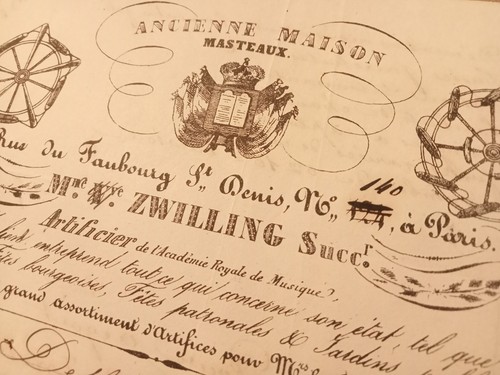 ANCIENNE MAISON
MASTEAUX.
Rue du Faubourg St. Denis, No. 140, à Paris.
Mr. W. ZWILLING Succr.
Artificier de l'Académie Royale de Musique,
entreprend toutce qui concerne son état, tel que
fêtes bourgeoises, Fêtes patronales & Jardins
grand assortiment d'Artifices pour Mrs les